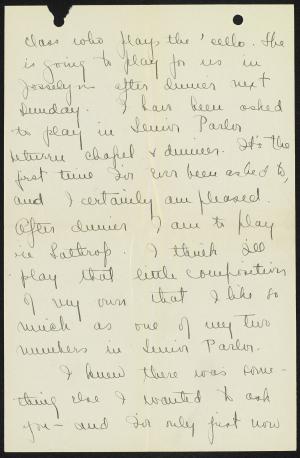 class who plays the 'cello. She
is going to play for us in
Josselyn after dinner next
Sunday. I have been asked
to play in Senior Parlor
between chapel & dinner. It's the
first time I've ever been asked to,
and I certainly am pleased.
After dinner I am to play
in Lathrop. I think I'll
play that little composition
of my own that I like so
much as one of my two
numbers in Senior Parlor.
I knew there was some-
thing else I wanted to ask
you - and I've only just now